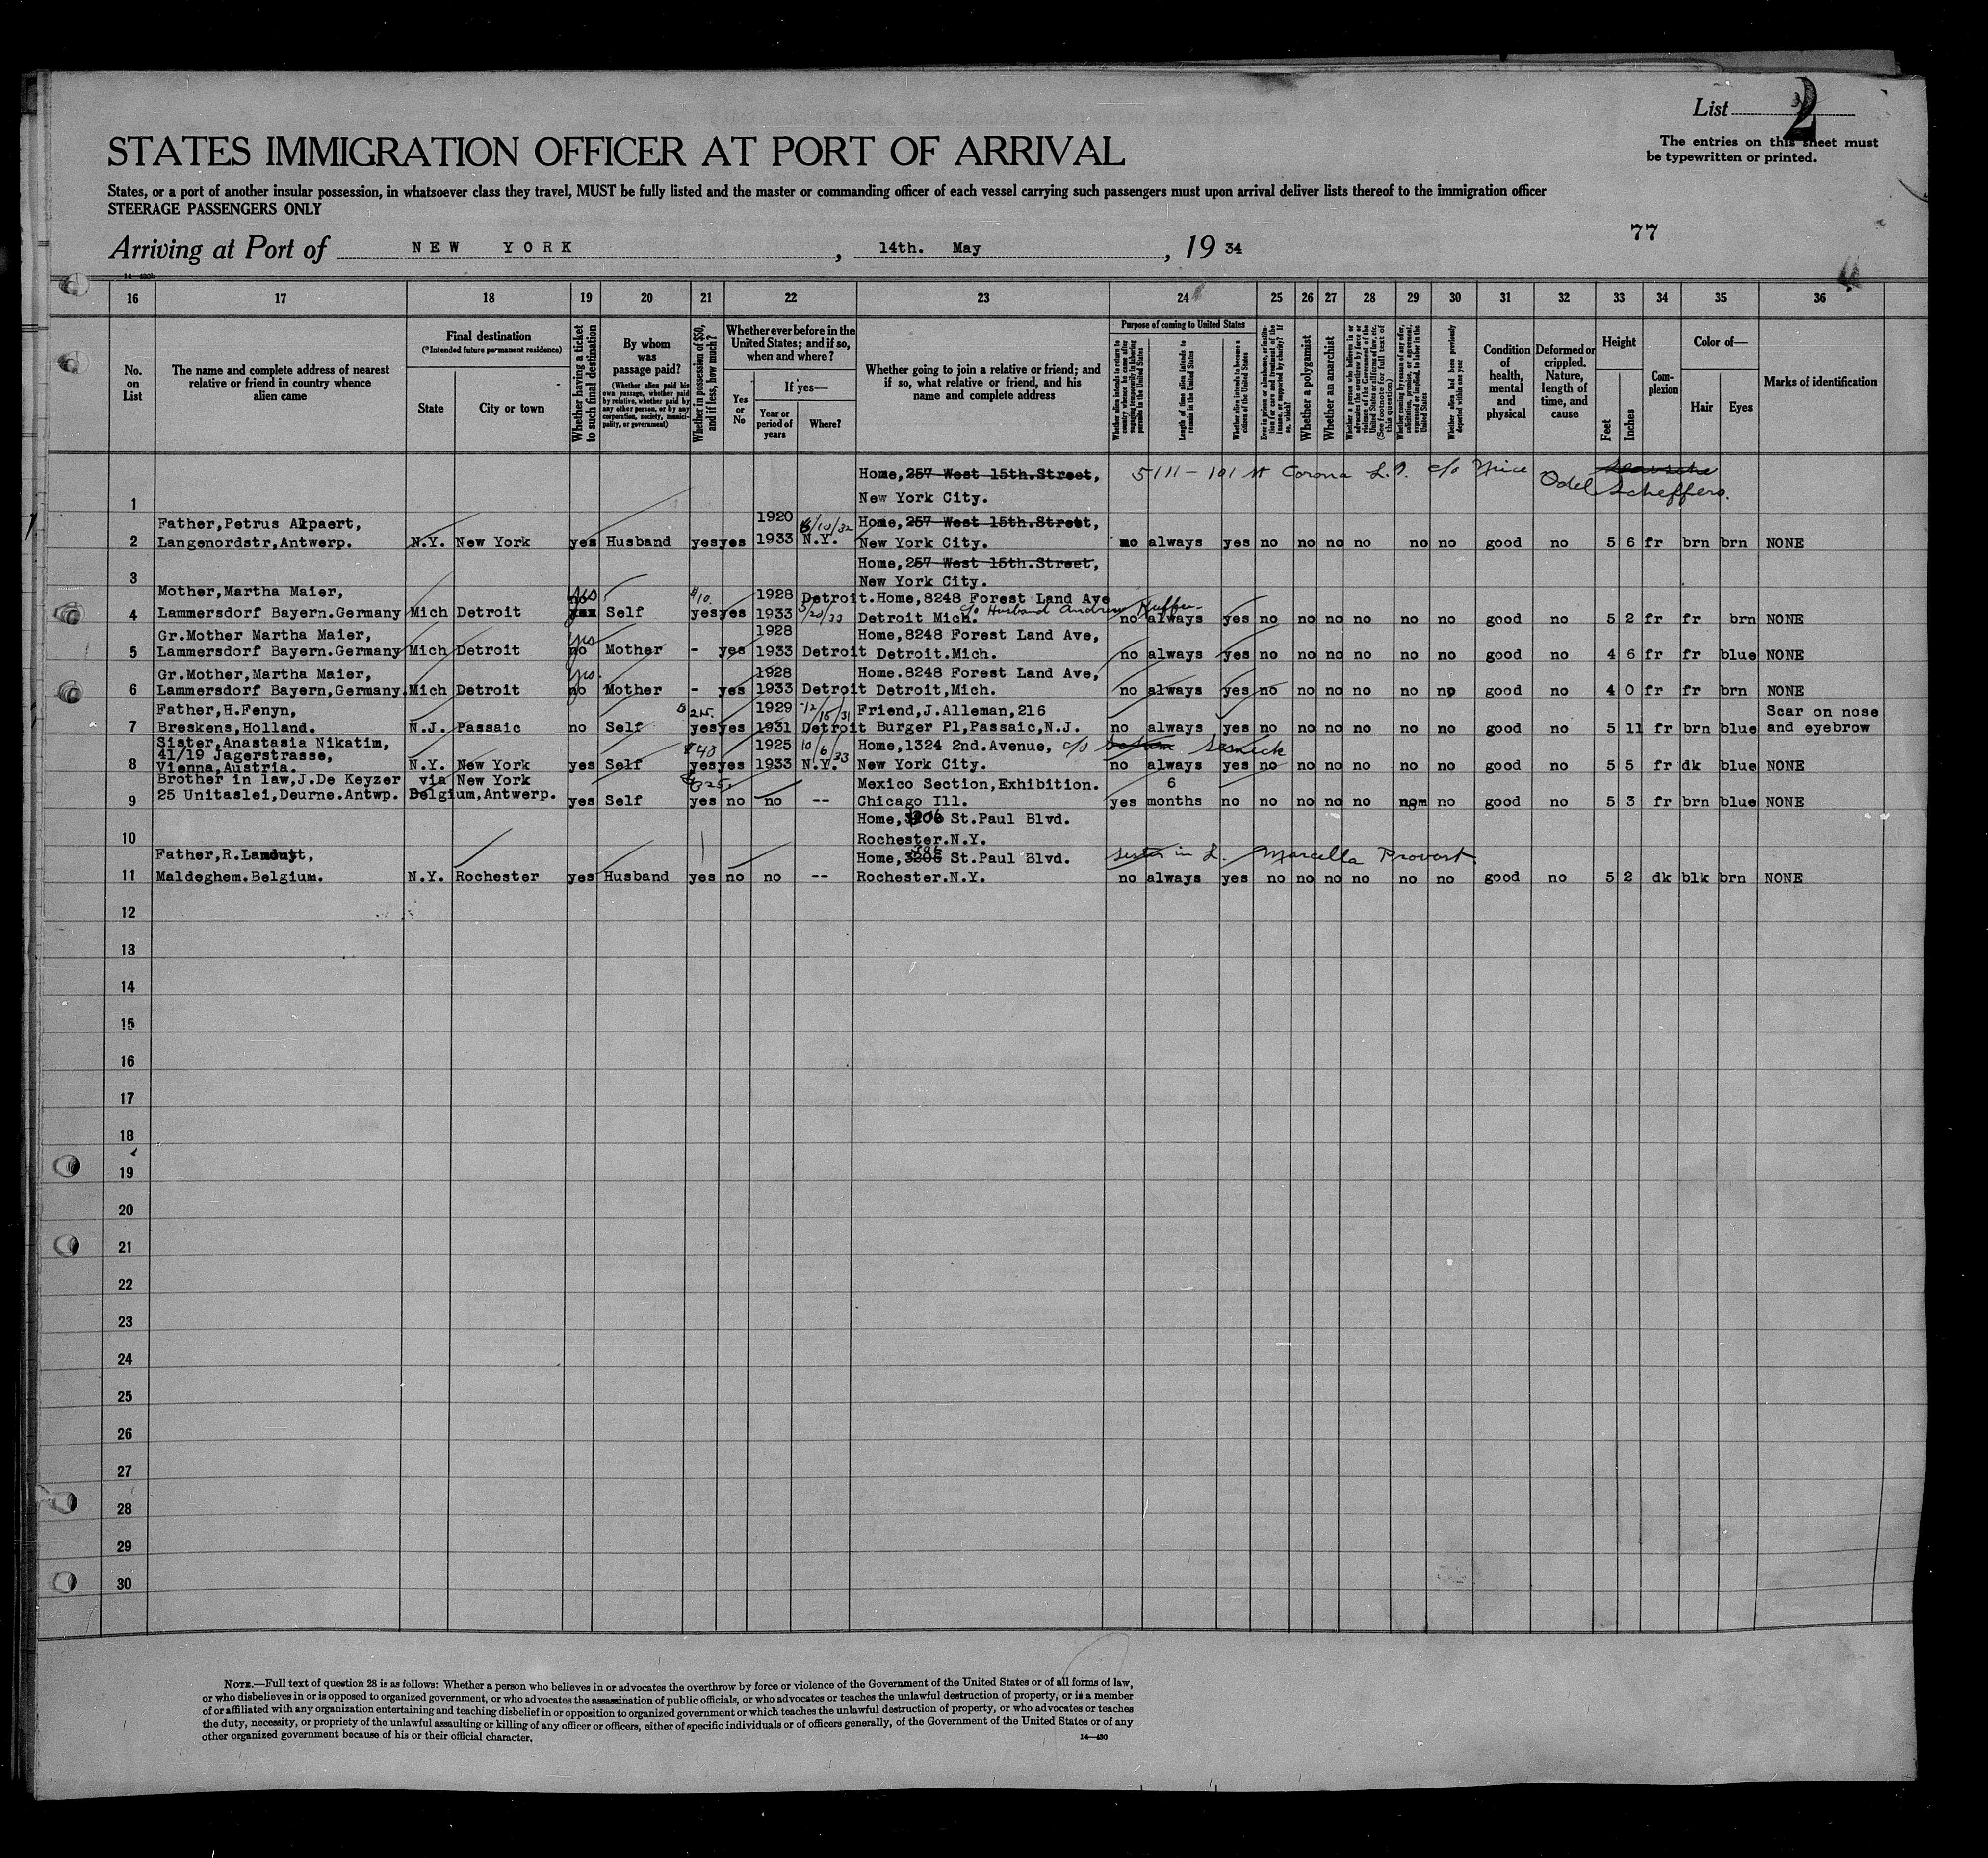 List 2
The entries on this sheet must
be typewritten or printed.
STATES IMMIGRATION OFFICER AT PORT OF ARRIVAL
States, or a port of another insular possession, in whatsoever class they travel, MUST be fully listed and the master or commanding officer of each vessel carrying such passengers must upon arrival deliver lists thereof to the immigration officer
STEERAGE PASSENGERS ONLY
77
Arriving at Port of NEW YORK, 14th. May, 19 34
16 17 18 19 20 21 22 23 24 25 26 27 28 29 30 31 32 33 34 35 36
No. on List
The name and complete address of nearest
relative or friend in country whence
alien came
Final destination
(*Intended future permanent residence)
State
City or town
Whether having a ticket
to such final destination
By whom
was
passage paid?
(Whether alien paid his
own passage, whether paid
by relative, whether paid by
any other person, or by any
corporation, society, munici-
pality, or government)
Whether in possession of $50,
and if less, how much?
Whether ever before in the
United States; and if so,
when and where?
Yes
or
No
If yes—
Year or
period of
years
Where?
Whether going to join a relative or friend; and
if so, what relative or friend, and his
name and complete address
Purpose of coming to United States
Whether alien intends to return to
country whence he came after
engaging temporarily in laboring
pursuits in the United States
Length of time alien intends to
remain in the United States
Whether alien intends to become a
citizen of the United States
Ever in prison or almshouse, or institu-
tion for care and treatment of the
insane, or supported by charity? If
so, which?
Whether a polygamist
Whether an anarchist
Whether a person who believes in or
advocates the overthrow by force or
violence of the Government of the
United States or all forms of law, etc.
(See footnote for full text of
this question)
Whether coming by reason of any offer,
solicitation, promise, or agreement,
expressed or implied, to labor in the
United States
Whether alien had been previously
deported within one year
Condition
of
health,
mental
and
physical
Deformed or
crippled.
Nature,
length of
time, and
cause
Height
Feet
Inches
Com-
plexion
Color of—
Hair
Eyes
Marks of identification
Home, 257 West 15th.Street, 5111 - 101 st Corona L.I. c/o Odel Scheffers.
1 New York City.
Father, Petrus Alpaert, 1920 /10/32 Home, 257 West 15th.Street,
2 Langenordstr, Antwerp. N.Y. New York yes Husband yes yes 1933 N.Y. New York City. no always yes no no no no no no good no 5 6 fr brn brn NONE
Home, 257 West 15th.Street,
3 New York City.
Mother, Martha Maier, yes $10. 1928 Detroit. Home, 8248 Forest Land Ave
4 Lammersdorf Bayern.Germany Mich Detroit Self yes yes 1933 3/20/33 Detroit Mich. c/o Husband Andrew no always yes no no no no no no good no 5 2 fr fr brn NONE
Gr.Mother Martha Maier, yes 1928 Home, 8248 Forest Land Ave,
5 Lammersdorf Bayern.Germany Mich Detroit no Mother - yes 1933 Detroit Detroit.Mich. no always yes no no no no no no good no 4 6 fr fr blue NONE
Gr.Mother, Martha Maier, yes. 1928 Home.8248 Forest Land Ave,
6 Lammersdorf Bayern, Germany. Mich Detroit no Mother - yes 1933 Detroit Detroit, Mich. no always yes no no no no no no good no 4 0 fr fr brn NONE
Father, H.Fenyn, 1929 12/15/31 Friend, J.Alleman, 216 Scar on nose
7 Breskens, Holland. N.J. Passaic no Self yes yes 1931 Detroit Burger Pl, Passaic, N.J. no always yes no no no no no no good no 5 11 fr brn blue and eyebrow
Sister, Anastasia Nikatim, $40 1925 10/6/33 Home, 1324 2nd.Avenue, c/o Sesnick
41/19 Jagerstrasse,
8 Vienna, Austria. N.Y. New York yes Self yes yes 1933 N.Y. New York City. no always yes no no no no no no good no 5 5 fr dk blue NONE
Brother in law, J.De Keyzer via New York Mexico Section, Exhibition. 6
9 25 Unitaslei, Deurne.Antwp. Belgium, Antwerp. yes Self yes no no -- Chicago Ill. yes months no no no no no no good no 5 3 fr brn blue NONE
Home, St.Paul Blvd.
10 Rochester.N.Y.
Father, R. Home, 3206 St.Paul Blvd. Sister in L. Marcella Provost.
11 Maldeghem.Belgium. N.Y. Rochester yes Husband yes no no -- Rochester.N.Y. no always yes no no no no no no good no 5 2 dk blk brn NONE
12
13
14
15
16
17
18
19
20
21
22
23
24
25
26
27
28
29
30
NOTE.—Full text of question 28 is as follows: Whether a person who believes in or advocates the overthrow by force or violence of the Government of the United States or of all forms of law,
or who disbelieves in or is opposed to organized government, or who advocates the assassination of public officials, or who advocates or teaches the unlawful destruction of property, or is a member
of or affiliated with any organization entertaining and teaching disbelief in or opposition to organized government or which teaches the unlawful destruction of property, or who advocates or teaches
the duty, necessity, or propriety of the unlawful assaulting or killing of any officer or officers, either of specific individuals or of officers generally, of the Government of the United States or of any
other organized government because of his or their official character.
14—430